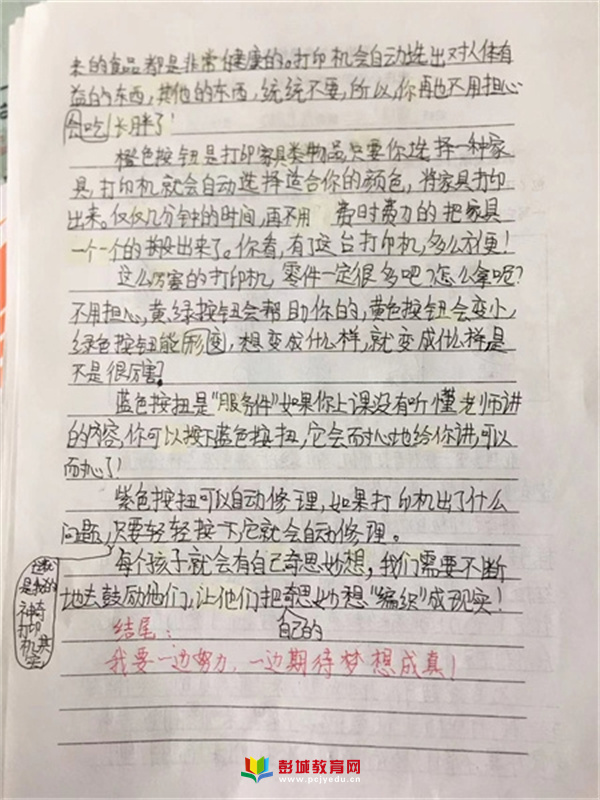 来的食品都是非常健康的。打印机会自动选出对人体有
益的东西，其他的东西，统统不要，所以，你再也不用担心
会吃长胖了！
橙色按钮是打印家具类物品，只要你选择一种家
具，打印机就会自动选择适合你的颜色，将家具打印
出来。仅仅几分钟的时间，再不用 费时费力的把家具
一个一个的搬出来了。你看，有了这台打印机，多么方便！
这么厉害的打印机，零件一定很多吧？怎么拿呢？
不用担心，黄，绿按钮会帮助你的，黄色按钮会变小，
绿色按钮能形变，想变成什么样，就变成什么样，是
不是很厉害？
蓝色按扭是“服务件”如果你上课没有听懂老师讲
的内容，你可以按下蓝色按扭，它会耐心地给你讲，可以
耐心了！
紫色按扭可以自动修理，如果打印机出了什么
问题，只要轻轻按下，它就会自动修理。
每个孩子就会有自己奇思妙想，我们需要不断
地去鼓励他们，让他们把奇思妙想“编织”成现实！
自己的
是我的
神奇
打印
机
结尾：
我要一边努力，一边期待梦想成真！
彭城教育网
www.pcjyedu.cn